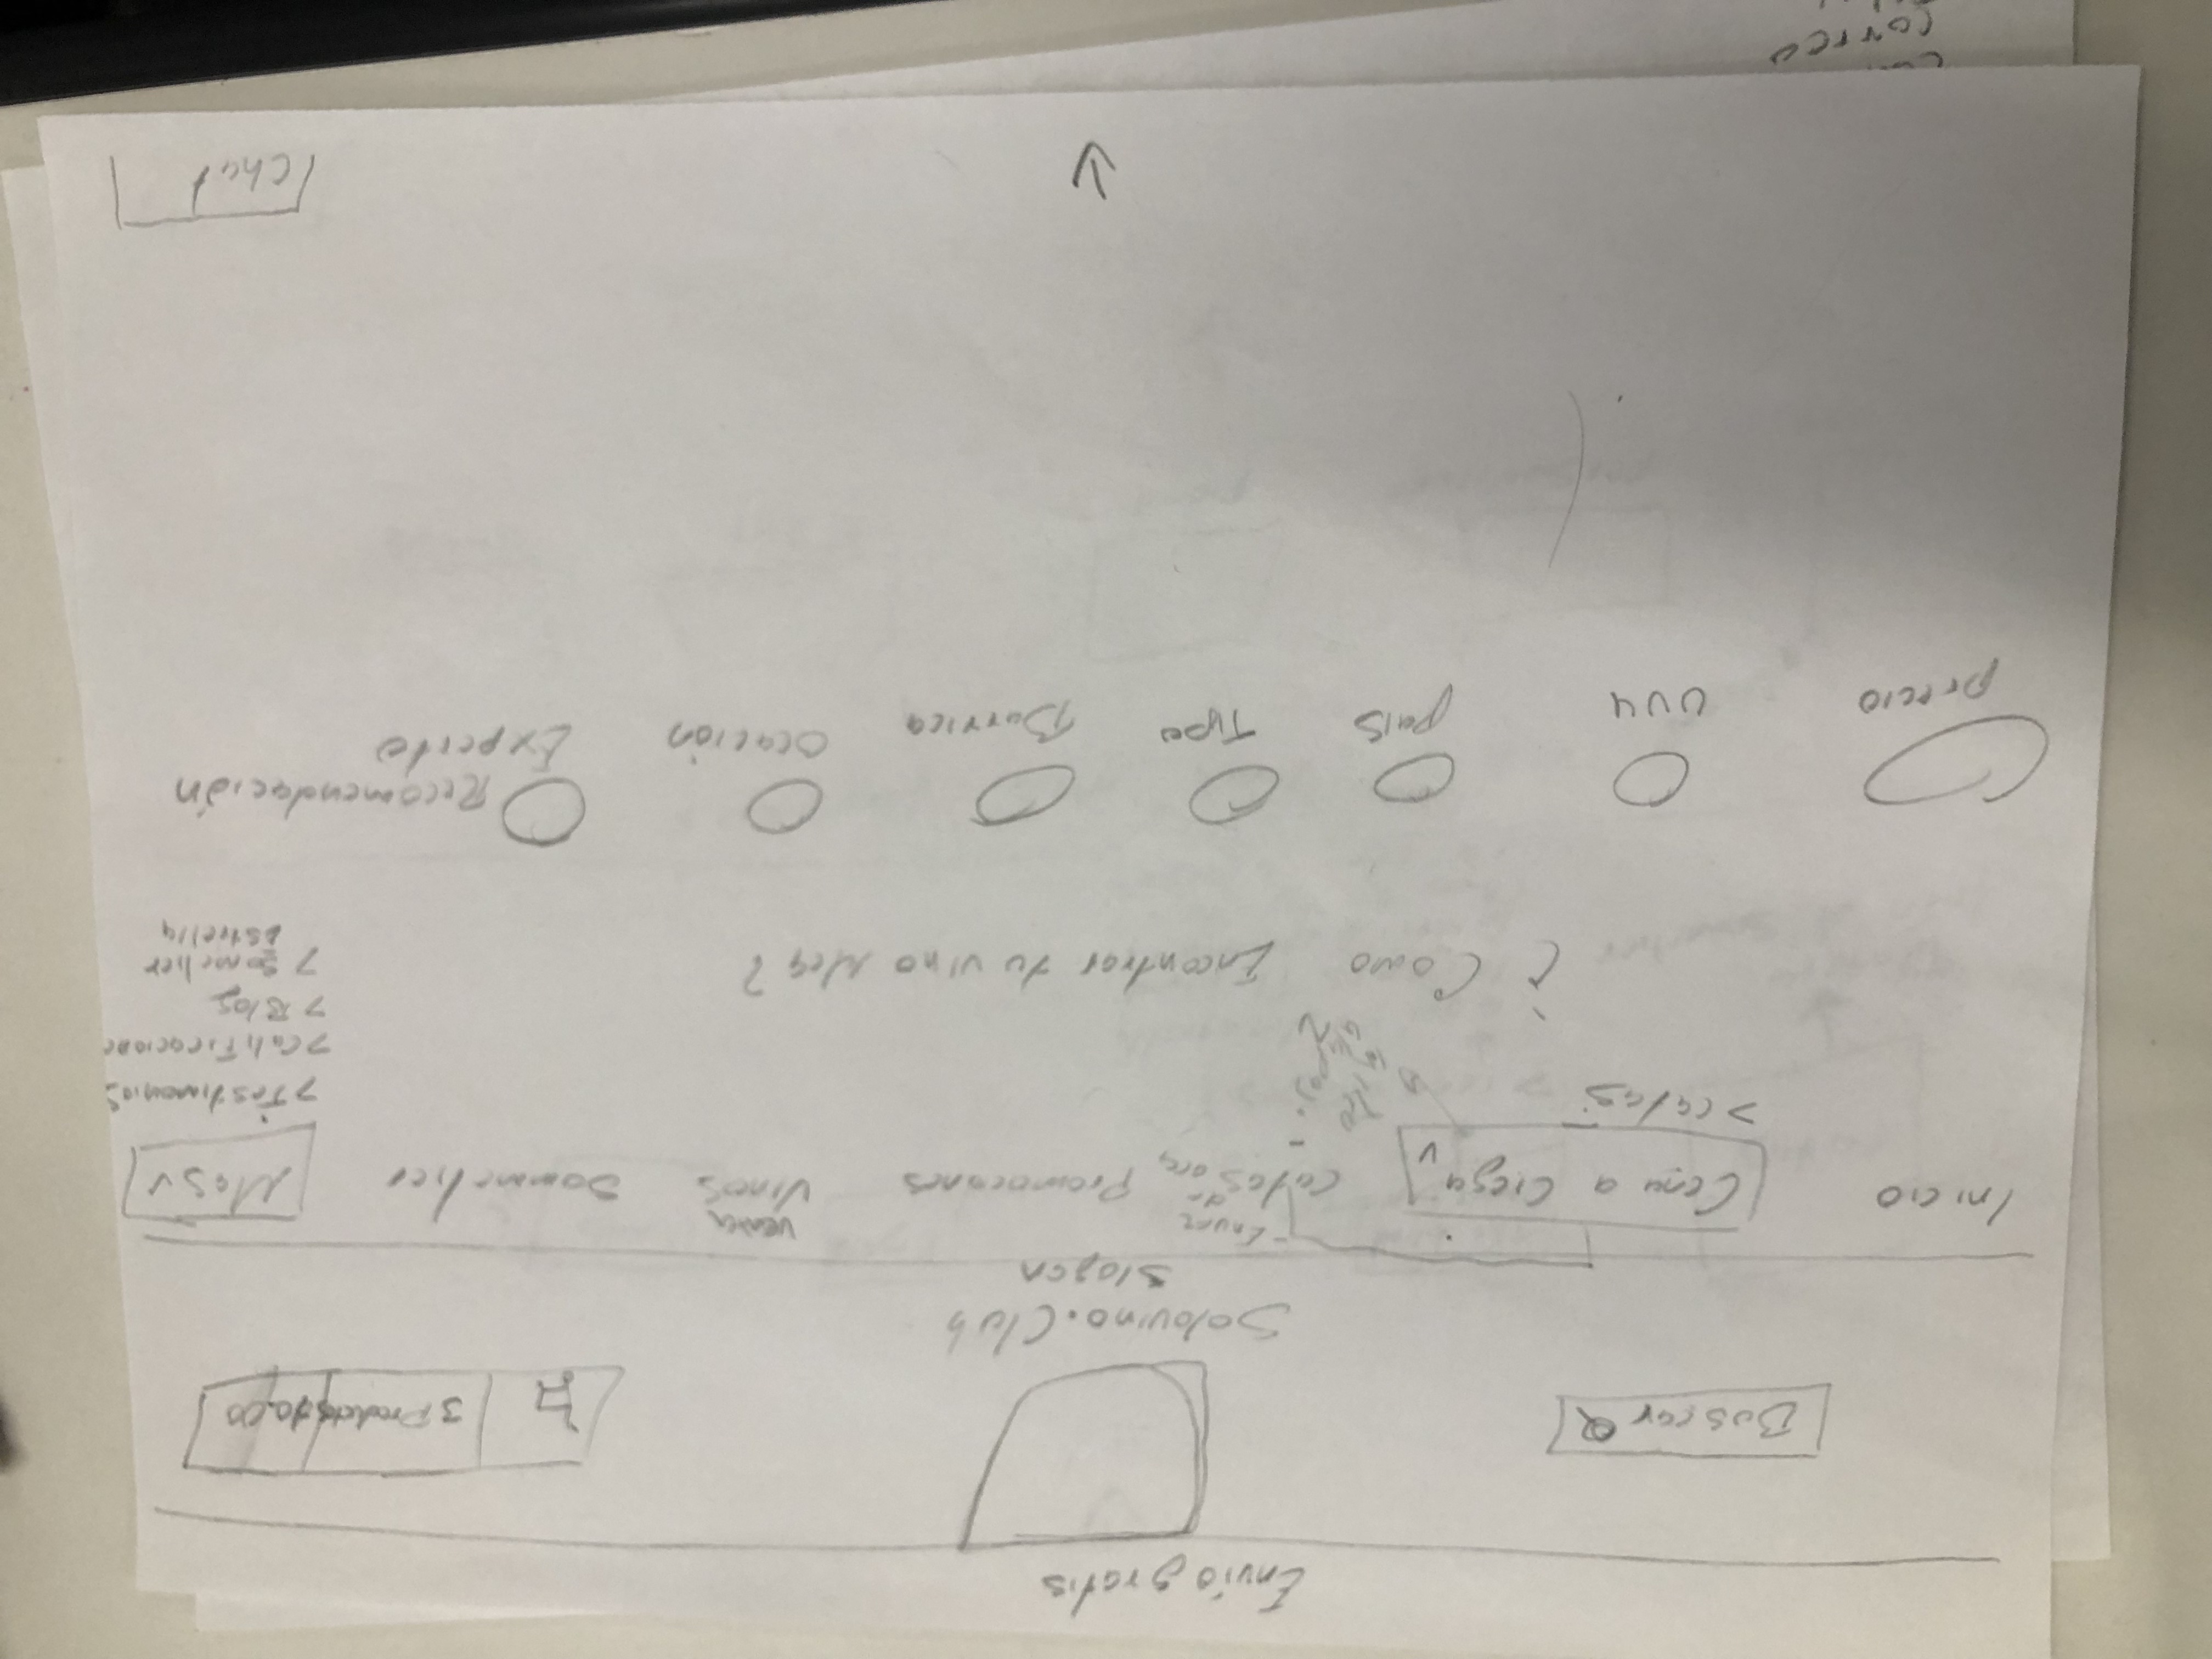 Envío gratis
Buscar
3 Productos
Solovino.Club
Slogan
Inicio
Cena a Ciegas
Catas
Promociones
venta
Vinos
Sommelier
Mas v
> catas
> Testimonios
> Calificacione
> Blog
> Somelier
Estrella
¿Como Encontrar tu vino
precio
uva
país
Tipo
Barrica
Ocación
Recomendación
Experto
Chat
Correo